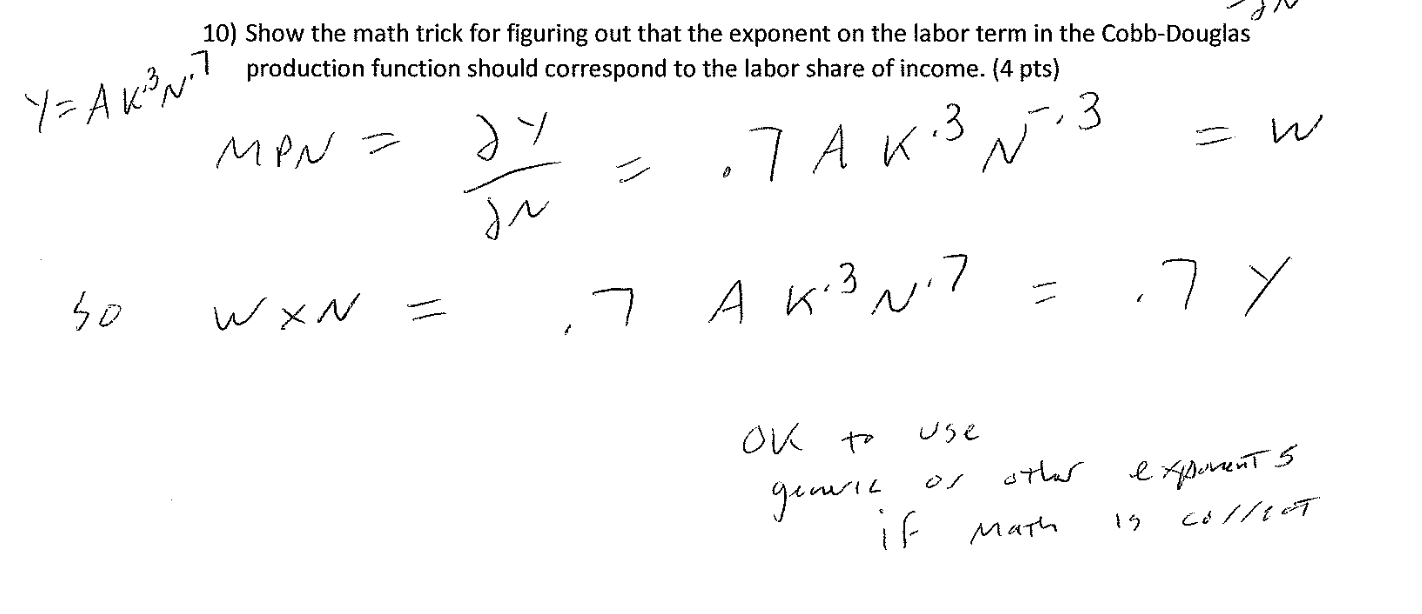 10) Show the math trick for figuring out that the exponent on the labor term in the Cobb-Douglas
production function should correspond to the labor share of income. (4 pts)
Y = A K^.3 N^.7
MPN = ∂Y/∂N = .7 A K^.3 N^-.3 = W
so W x N = .7 A K^.3 N^.7 = .7 Y
OK to use
generic or other exponents
if math is correct